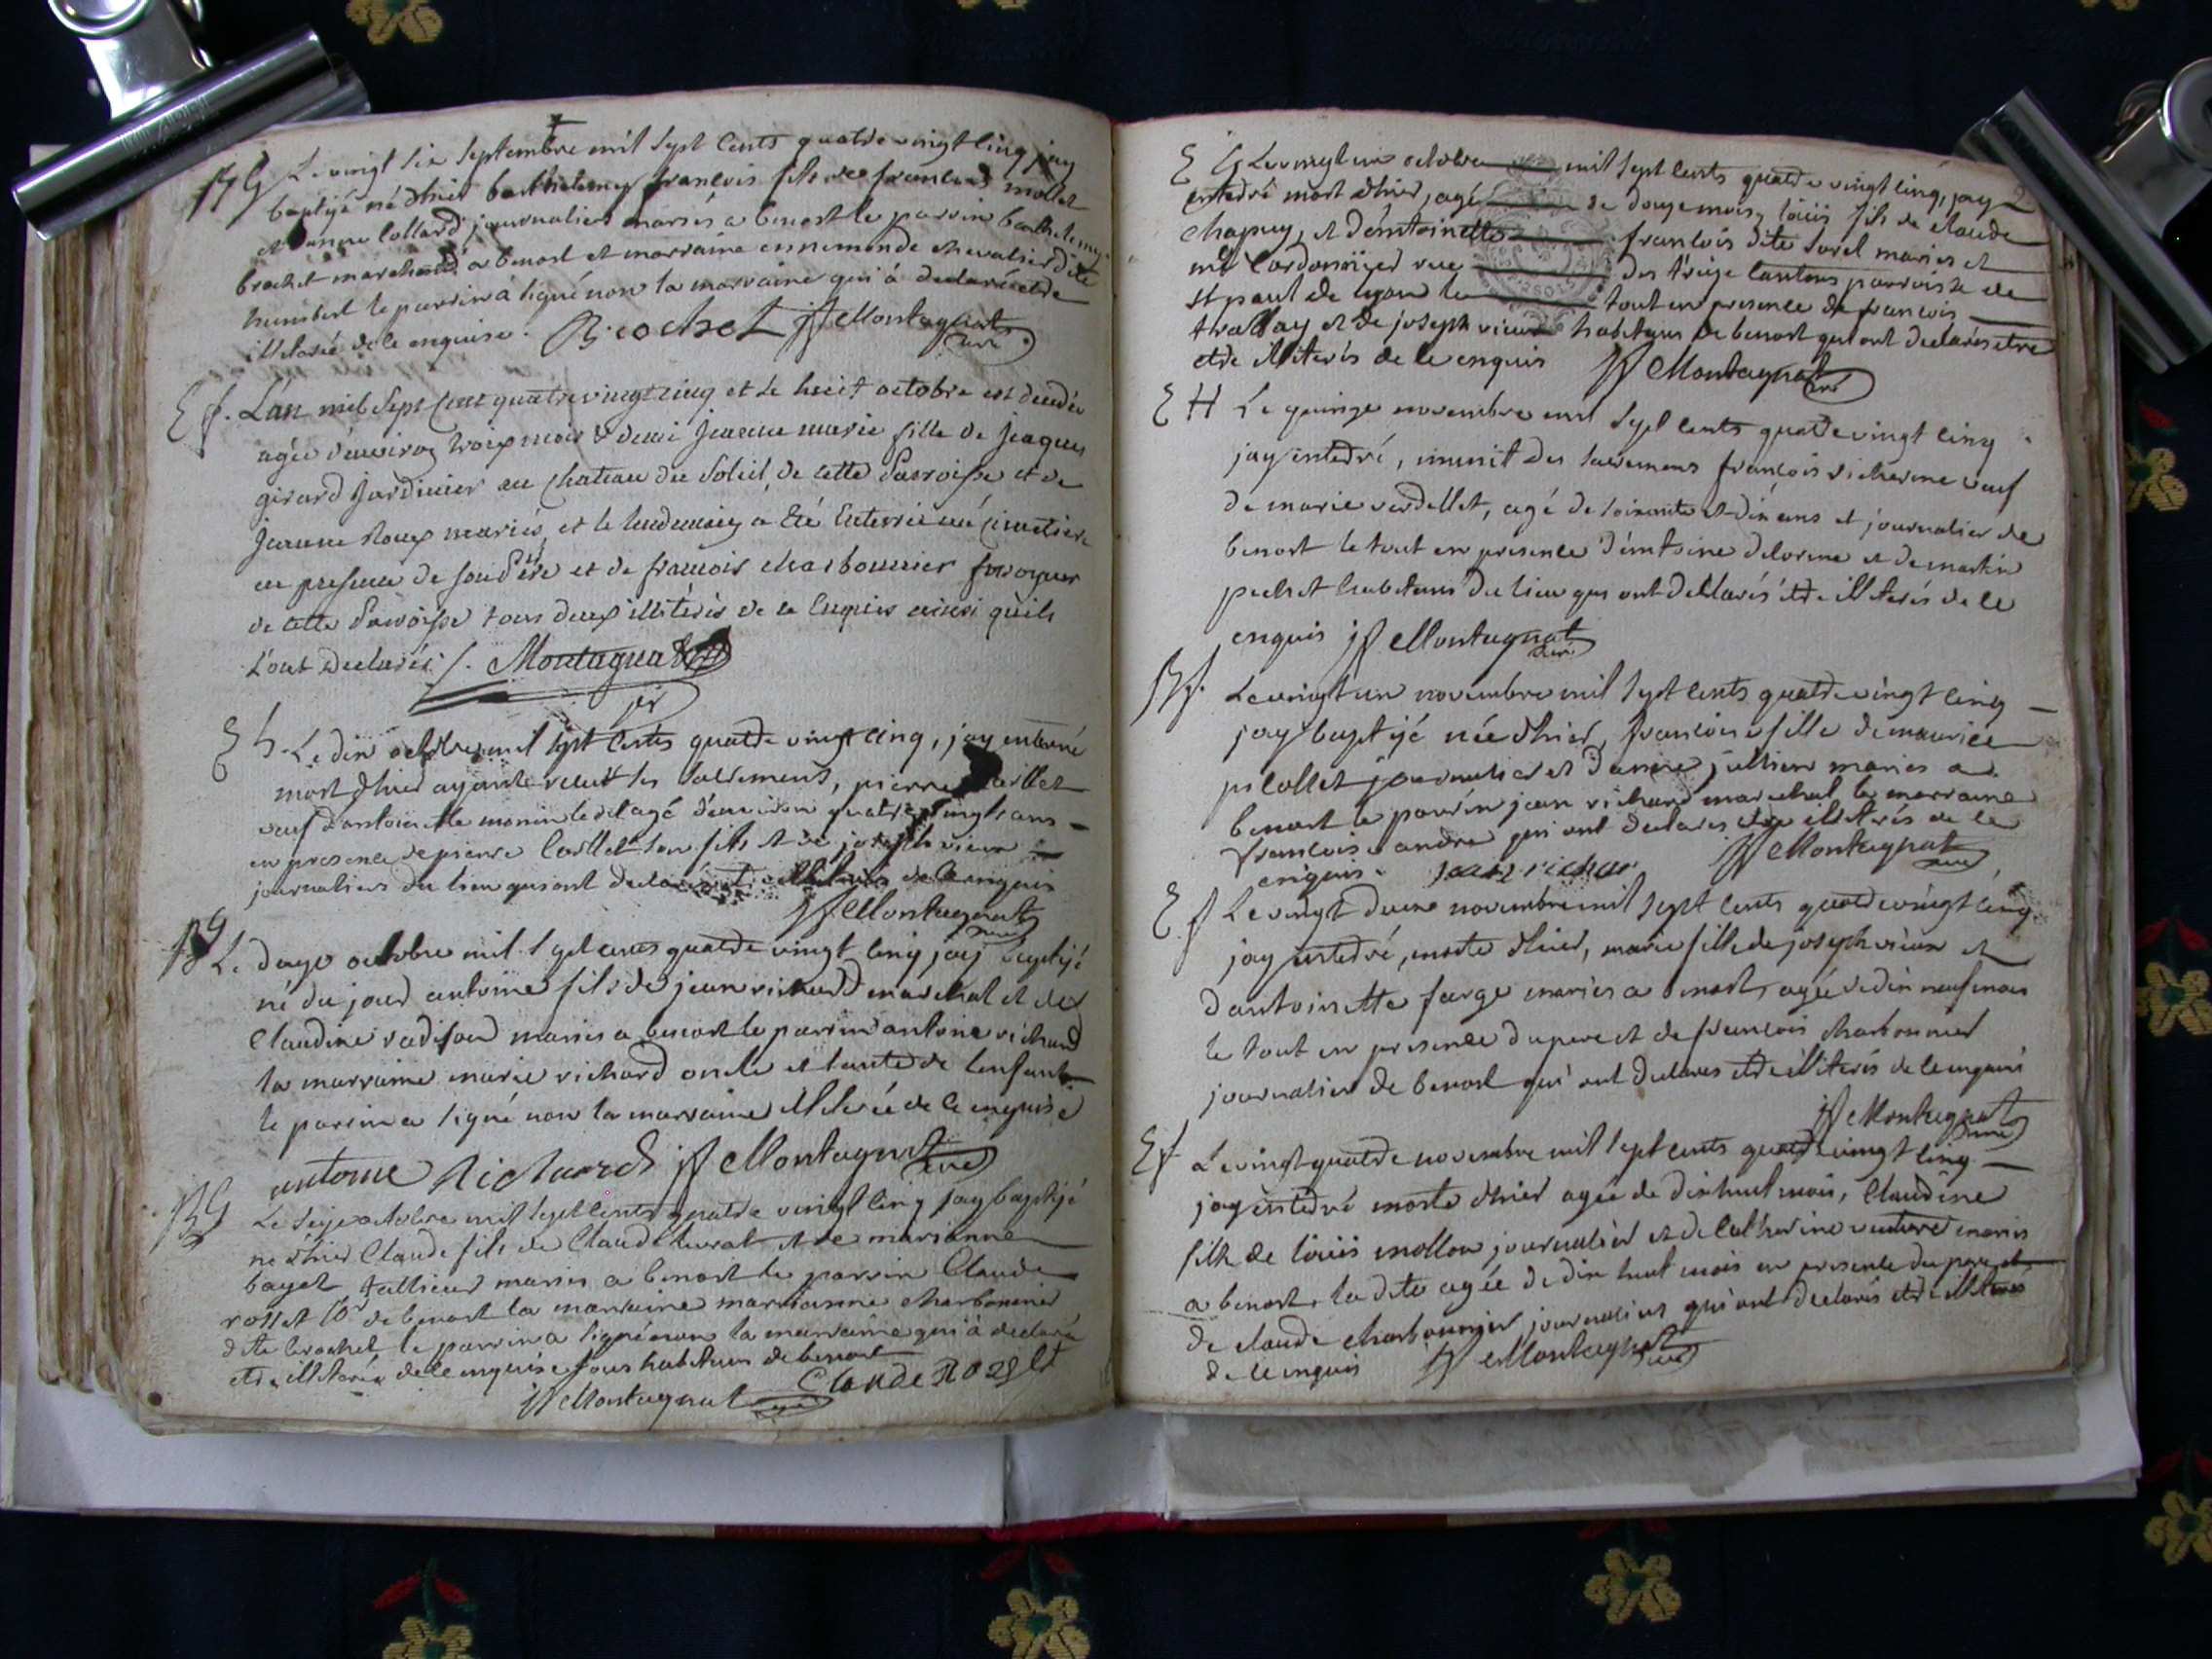 BG Le vingt six septembre mil sept cents quatre vingt cinq jay
baptisé né d'hier barthelemy françois fils de françois mollet
et danne collard journaliers mariés a benost le parrin barthelemy
brochet marchand a benost et marraine ennemonde chevalier dite
humbert le parrin a signé non la marraine qui à declaré etre
illiterée de ce enquise. Brochet jf Montagnat curé
E f. L'an mil Sept Cent quatre vingt cinq et le huit octobre est decedée
agée d'environ trois mois & demi Jeanne marie fille de Jaques
girard Jardinier au chateau du Soleil de cette Parroisse et de
Jeanne Roux mariés, et le lendemain a Eté Enterrée au cimetiere
en presence de son Père et de françois charbonnier fossoyeur
de cette Paroisse tous deux illitérés de ce Enquis ainsi quils
L'ont declarés /. Montagnat
E h. Le dix octobre mil sept cents quatre vingt cinq, jay enterré
mort d'hier ayant recut les sacremens, pierre
veuf d'antoinette monin le dt agé d'environ quatre vingts ans
en presence de pierre son fils et de joseph vieux
journaliers du lieu qui ont declarés etre illiterés de ce enquis
jf Montagnat curé
BG Le douze octobre mil sept cents quatre vingt cinq jay baptisé
né du jour antoine fils de jean richard marechal et de
Claudine vadison mariés a benost le parrin antoine richard
la marraine marie richard oncle et tante de lenfant
le parrin a signé non la marraine illiterée de ce enquise
antoine Richard jf Montagnat curé
BG Le seize octobre mil sept cents quatre vingt cinq jay baptisé
né d'hier Claude fils de Claude et de marianne
bayet tallieur mariés a benost le parrin Claude
rosset de benost la marraine marianne charbonnier
dite brochet le parrin a signé non la marraine qui à declaré
etre illiterée de ce enquise tous habitans de benost
jf Montagnat curé Claude Roset
E G Le vingt un octobre mil sept cents quatre vingt cinq, jay
enterré mort d'hier, agé de douze mois, loüis fils de claude
chapuy, et d'entoinette françois dite sorel mariés et
me Cordonnier rue des treize cantons parroisse de
st paul de lyon le tout en presence de françois
trallay et de joseph vieux habitans de benost qui ont declarés etre
etre illiterés de ce enquis jf Montagnat curé
E H Le quinze novembre mil sept cents quatre vingt cinq
jay enterré, munit des sacremens françois richerme veuf
de marie verdellet, agé de soixante et dix ans et journalier de
benost le tout en presence d'entoine delorme et de martin
pechet habitans du lieu qui ont declarés etre illiterés de ce
enquis jf Montagnat curé
B f. Le vingt un novembre mil sept cents quatre vingt cinq
jay baptisé née d'hier, françoise fille de maurice
pi collet journalier et danne jullien mariés a
benost le parrin jean richard marechal la marraine
françoise andre qui ont declarés etre illiterés de ce
enquis. jean richar jf Montagnat curé
E f Le vingt deux novembre mil sept cents quatre vingt cinq
jay enterré, morte d'hier, marie fille de joseph vieux et
d'antoinette farge mariés a benost, agée de dix neuf mois
le tout en presence du pere et de françois charbonnier
journalier de benost qui ont declarés etre illiterés de ce enquis
jf Montagnat curé
E f Le vingt quatre novembre mil sept cents quatre vingt cinq
jay enterré morte d'hier agée de dix huit mois, Claudine
fille de loüis mollon journalier et de Catherine mariés
a benost, la dite agée de dix huit mois en presence du pere et
de claude charbonnier journaliers qui ont declarés etre illiterés
de ce enquis jf Montagnat curé